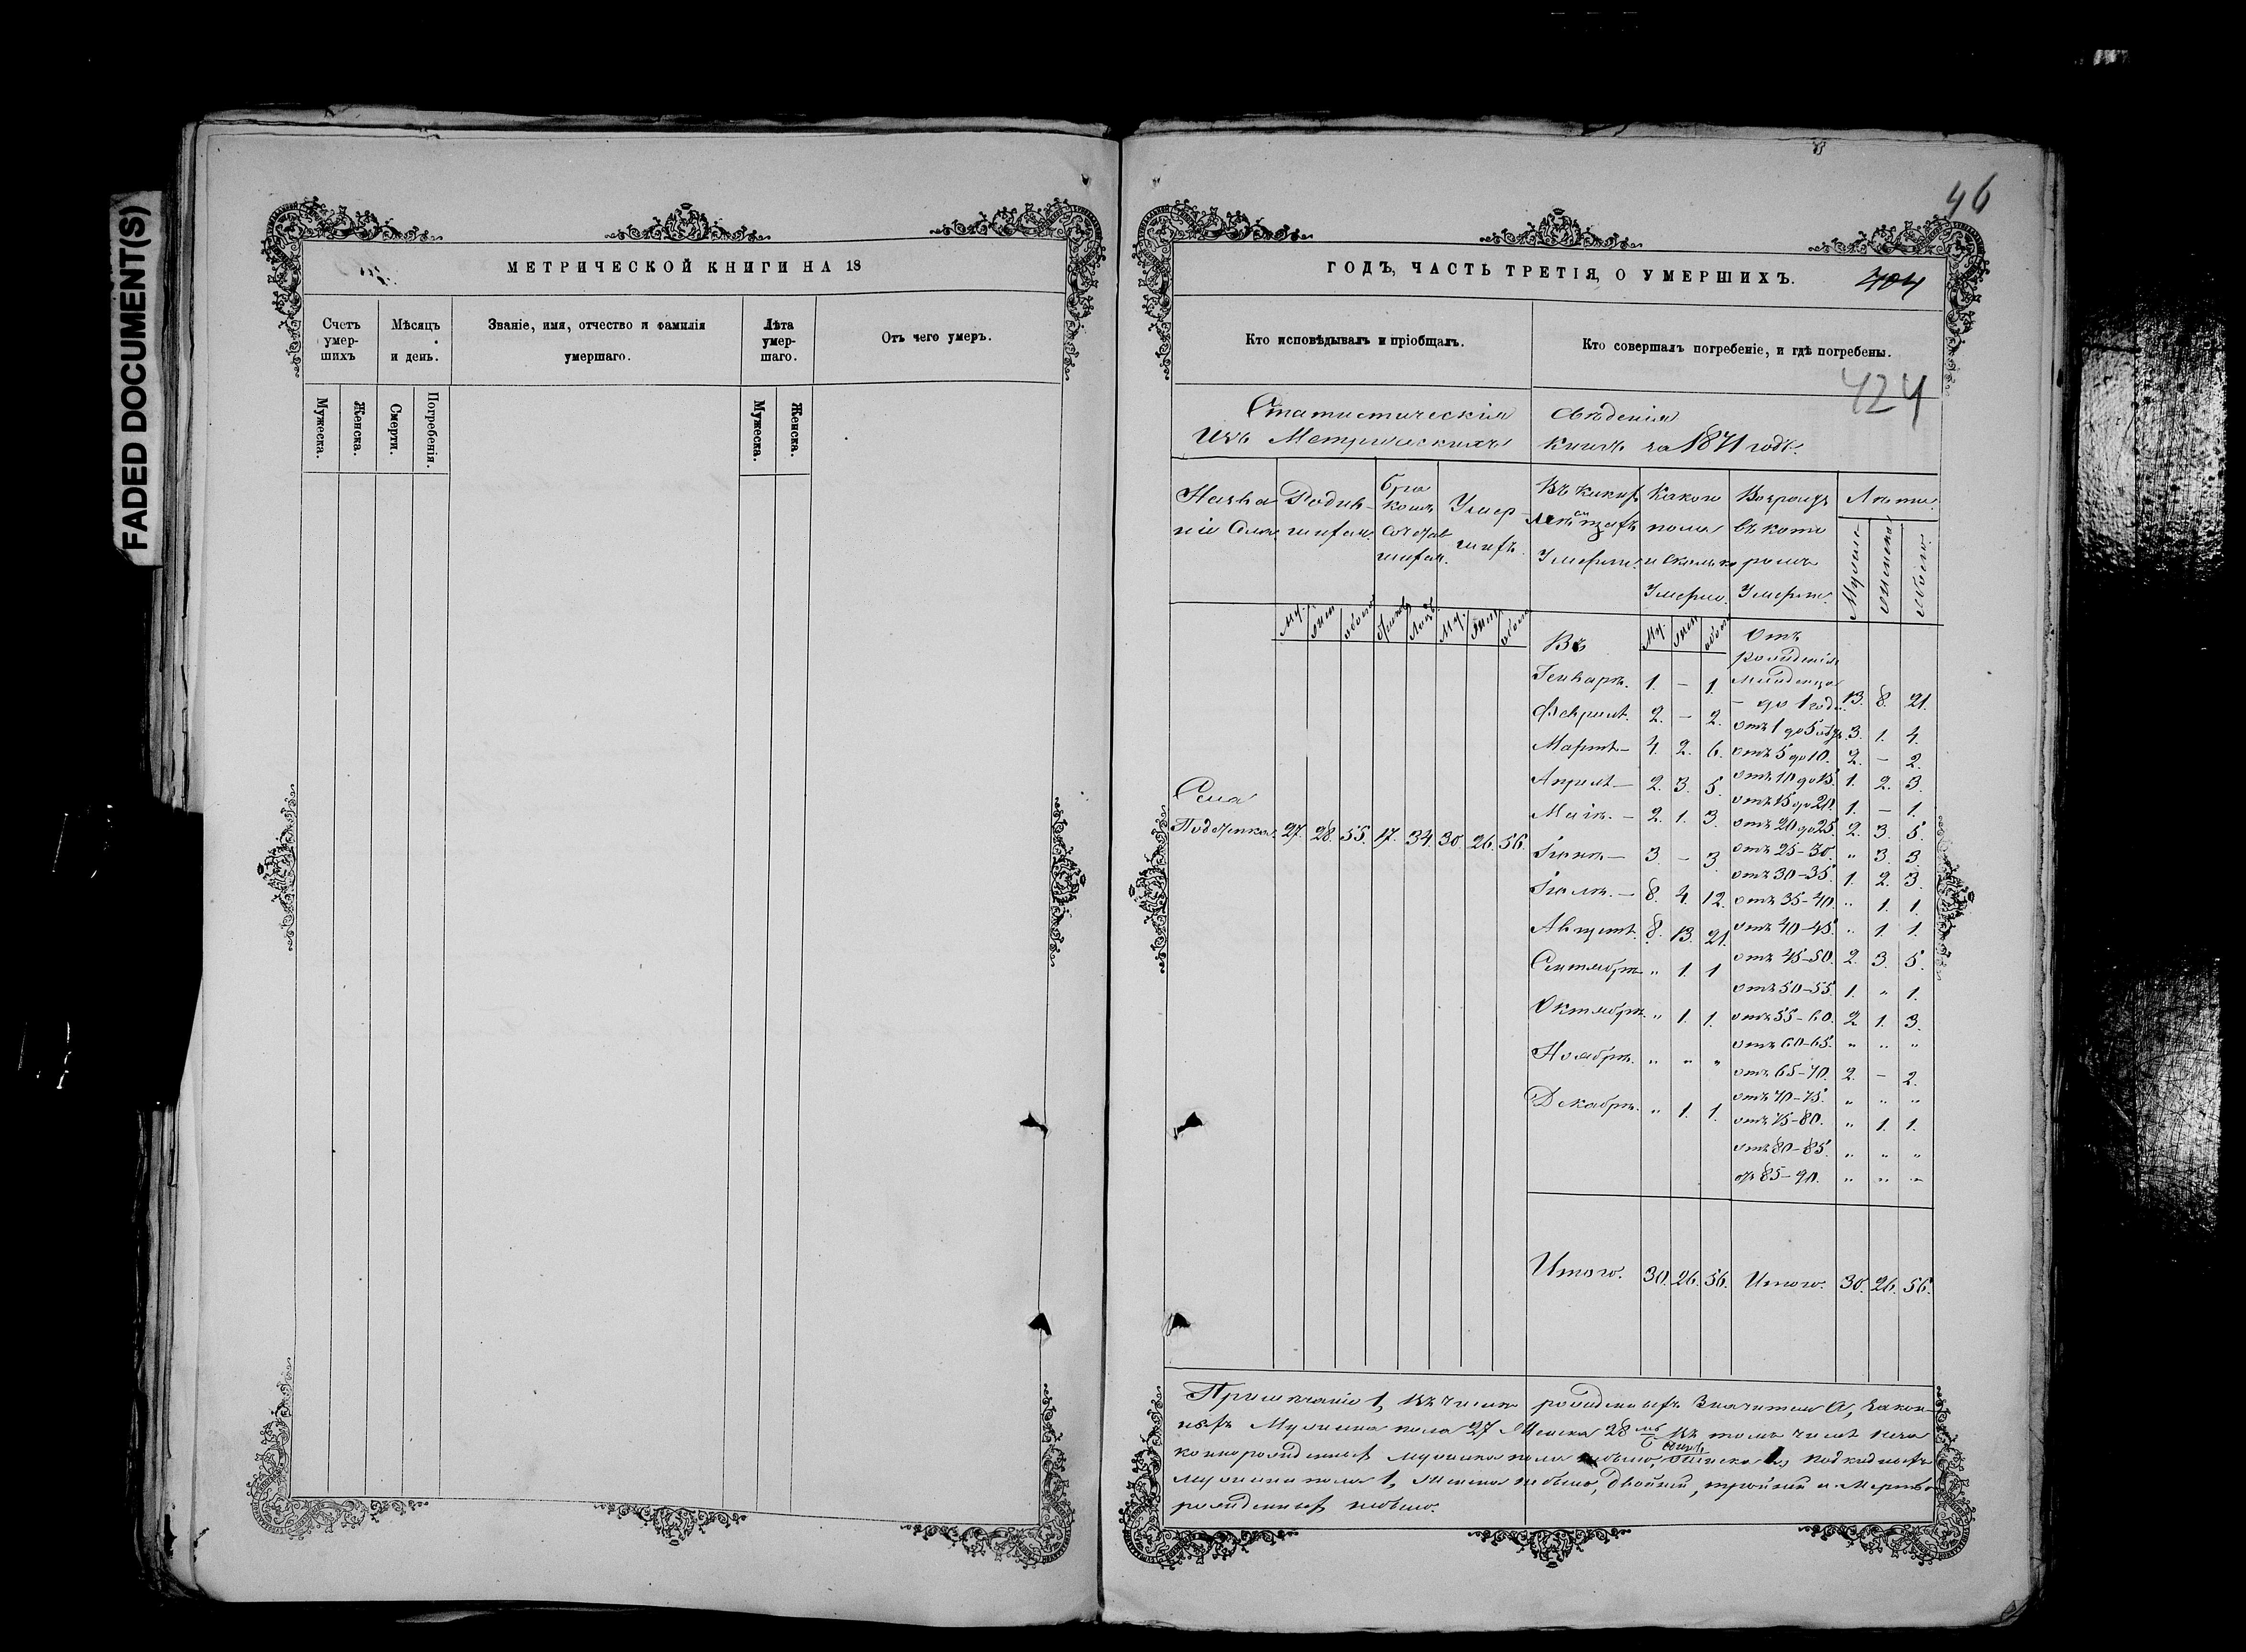 FADED DOCUMENT(S)
МЕТРИЧЕСКОЙ КНИГИ НА 18
Счетъ умер- шихъ
Мѣсяцъ и день.
Званіе, имя, отчество и фамилія умершаго.
Лѣта умер- шаго.
Отъ чего умеръ.
Мужеска.
Женска.
Смерти.
Погребенія.
Мужеска.
Женска.
46
ГОДЪ, ЧАСТЬ ТРЕТІЯ, О УМЕРШИХЪ.
404
Кто исповѣдывалъ и пріобщалъ.
Кто совершалъ погребеніе, и гдѣ погребены.
424
Статистическія свѣденія
Изъ Метрическихъ книгъ за 1871 годъ.
Назва
ніе Села
Родив-
шихся.
Бра
комъ
сочетав
шихся.
Умер-
шихъ.
Въ какихъ
мѣсяцахъ
Умерли.
Какого
пола
и сколько
Умерло.
Возрастъ
въ кото
ромъ
Умерли.
Лѣта.
Муж. Жен. обоего
Муж. Жен. обоего
Муж. Жен. обоего
Села 27. 28. 55. 17. 34. 30. 26. 56.
Въ
Генварѣ. 1. – 1.
Февралѣ. 2. – 2.
Мартѣ – 4. 2. 6.
Апрелѣ – 2. 3. 5.
Маіѣ. – 2. 1. 3.
Іюнѣ – 3. – 3.
Іюлѣ. – 8. 4. 12.
Августѣ. 8. 13. 21.
Сентябрѣ „ 1. 1
Октябрѣ. „ 1. 1.
Ноябрѣ. „ „ „
Декабрѣ. „ 1. 1.
Итого. 30. 26. 56.
Отъ
рожденія
младенца
– до 1 года. 13. 8. 21.
отъ 1 до 5 3. 1. 4.
отъ 5 до 10. 2. – 2.
отъ 10 до 15. 1. 2. 3.
отъ 15 до 20. 1. – 1.
отъ 20 до 25. 2. 3. 5.
отъ 25–30. „ 3. 3.
отъ 30–35. 1. 2. 3.
отъ 35–40. „ 1. 1.
отъ 40–45. „ 1. 1.
отъ 45–50. 2. 3. 5.
отъ 50–55. 1. „ 1.
отъ 55–60. 2 1. 3.
отъ 60–65. „ „ „
отъ 65–70. 2. – 2.
отъ 70–75. „ „ „
отъ 75–80. „ 1. 1.
отъ 80–85. „ „ „
85–90. „ „ „
Итого. 30. 26. 56.
Примѣчаніе 1, Въ числѣ рожденныхъ Значится А, Закон-
ныхъ Мужеска пола 27 Женска 28 Въ томъ числѣ неза
коннорожденныхъ мужеска пола небыло, женска 1, подкидныхъ
мужеска пола 1, Женска небыло, двойней, тройней и Мертво
рожденныхъ небыло.